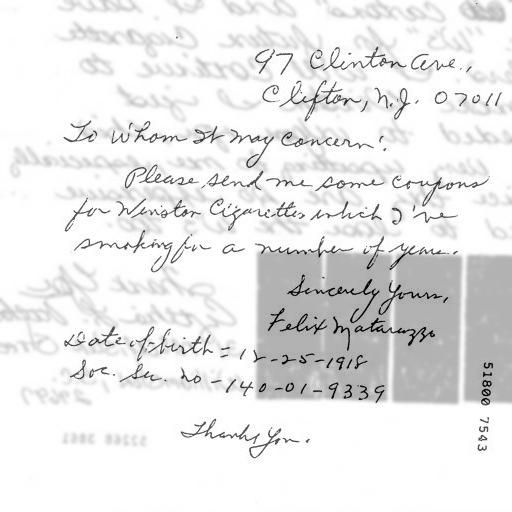 97 Clinton Ave.,
Clifton, N.J. 07011
To Whom It May Concern:
Please send me some coupons
for Winston Cigarettes which I've
smoking for a number of years.
Sincerely Yours,
Felix Matarazzo
Date of birth = 12-25-1918
Soc. Sec. no - 140-01-9339
Thank You.
51800 7543